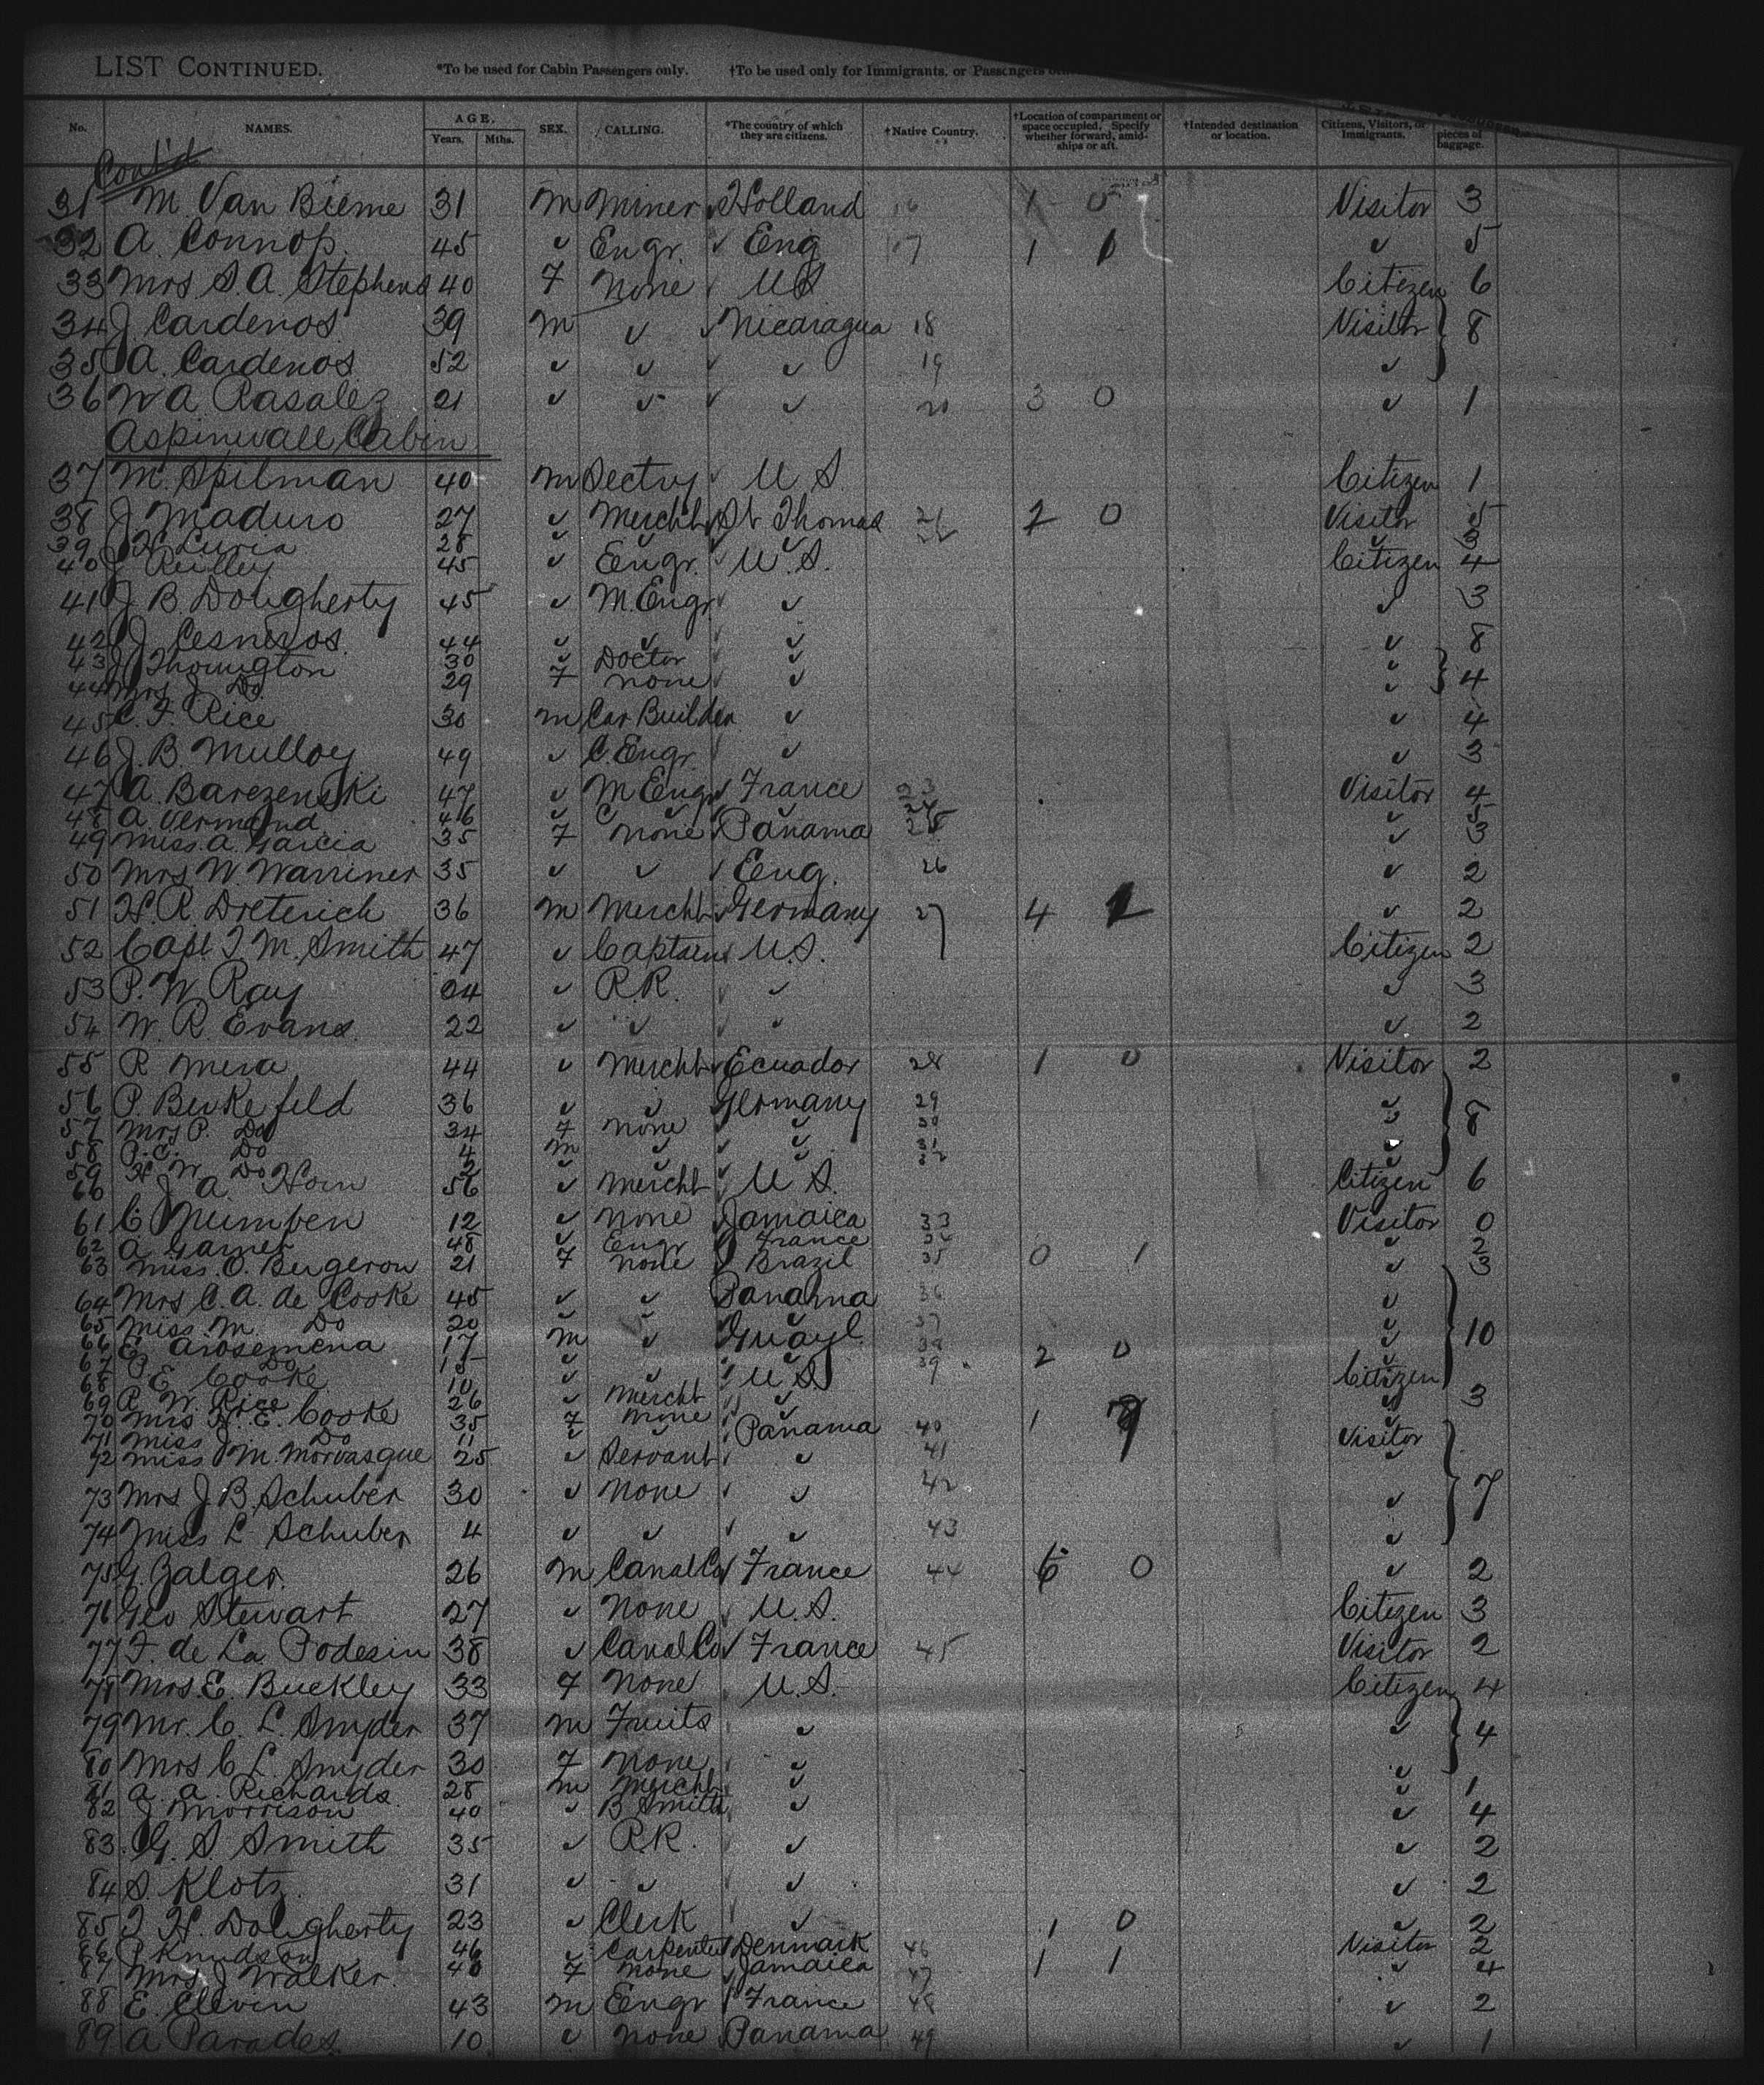 LIST CONTINUED. *To be used for Cabin Passengers only. †To be used only for Immigrants, or Passengers
No. NAMES. AGE. Years. Mths. SEX. CALLING. *The country of which they are citizens. †Native Country. †Location of compartment or space occupied. Specify whether forward, amidships or aft. †Intended destination or location. Citizens, Visitors, or Immigrants. pieces of baggage.
Cont'd
31 M. Van Bieme 31 M Miner ✓ Holland 16 1 0 Visitor 3
32 A. Connop 45 ✓ Engr. ✓ Eng 17 1 1 ✓ 5
33 Mrs S. A. Stephens 40 F None ✓ US Citizen 6
34 J Cardenos 39 M ✓ ✓ Nicaragua 18 Visitor 8
35 A. Cardenos 52 ✓ ✓ ✓ ✓ 19 ✓
36 W A Rasalez 21 ✓ ✓ ✓ ✓ 20 3 0 ✓ 1
Aspinwall Cabin
37 M. Spilman 40 M Sectry ✓ U S. Citizen 1
38 J Maduro 27 ✓ Mercht ✓ St Thomas 21 2 0 Visitor 5
39 H Luria 28 ✓ ✓ ✓ ✓ 22 ✓ 3
40 J Reilley 45 ✓ Engr. ✓ U.S. Citizen 4
41 J B. Dougherty 45 ✓ M. Engr ✓ ✓ ✓ 3
42 J Cesneros 44 ✓ ✓ ✓ ✓ ✓ 8
43 J Thorington 30 ✓ Doctor ✓ ✓ ✓ 4
44 Mrs J Do 29 F none ✓ ✓ ✓
45 C. F. Rice 30 M Car Builder ✓ ✓ 4
46 J. B. Mulloy 49 ✓ C. Engr. ✓ ✓ ✓ 3
47 A. Barezenski 47 ✓ M Engr ✓ France 23 Visitor 4
48 A Vermond 46 ✓ ✓ ✓ ✓ 24 ✓ 5
49 Miss. A. Garcia 35 F none ✓ Panama 25 ✓ 3
50 Mrs W. Warriner 35 ✓ ✓ ✓ Eng. 26 ✓ 2
51 H. R. Dreterich 36 M Mercht ✓ Germany 27 4 ✓ 2
52 Capt T. M. Smith 47 ✓ Captain ✓ U.S. Citizen 2
53 P. W. Ray ✓ R.R. ✓ ✓ ✓ 3
54 W. R. Evans 22 ✓ ✓ ✓ ✓ ✓ 2
55 R Mera 44 ✓ Mercht ✓ Ecuador 28 1 0 Visitor 2
56 P. Berkefeld 36 ✓ ✓ Germany 29 ✓ 8
57 Mrs P. Do 34 F none ✓ ✓ 30 ✓
58 P. C. Do 4 M ✓ ✓ ✓ 31 ✓
59 H W Do 2 ✓ ✓ ✓ ✓ 32 ✓
60 J A. Horn 56 ✓ Mercht ✓ U S. Citizen 6
61 C Numben 12 ✓ None Jamaica 33 Visitor 0
62 A Garner 48 ✓ Engr ✓ France 34 ✓ 2
63 Miss. O. Bergeron 21 F None ✓ Brazil 35 0 1 ✓ 3
64 Mrs C. A. de Cooke 45 ✓ ✓ Panama 36 ✓ 10
65 Miss M. Do 20 ✓ ✓ ✓ 37 ✓
66 E Arosemena 17 M ✓ Guayl. 38 ✓
67 P Do 15 ✓ ✓ ✓ 39 2 0 ✓
68 E Cooke 10 ✓ ✓ ✓ US Citizen
69 R. W. Rice 26 ✓ Mercht ✓ ✓ ✓ 3
70 Mrs H. E. Cooke 35 F none ✓ ✓ 1 ✓
71 Miss J Do 11 ✓ ✓ Panama 40 Visitor 7
72 Miss J M. Morvasque 25 ✓ Servant ✓ ✓ 41 ✓
73 Mrs J. B. Schuber 30 ✓ None ✓ ✓ 42 ✓
74 Miss L Schuber 4 ✓ ✓ ✓ ✓ 43 ✓
75 G. Zalger 26 M Canal Co ✓ France 44 6 0 ✓ 2
76 Geo Stewart 27 ✓ None ✓ U.S. Citizen 3
77 F. de La Podesin 38 ✓ Canal Co ✓ France 45 Visitor 2
78 Mrs. E. Buckley 33 F None U.S. Citizen 4
79 Mr. C. L. Snyder 37 M Fruits ✓ ✓ 4
80 Mrs C L. Snyder 30 F None ✓ ✓ ✓
81 A. A. Richards 28 M Mercht ✓ ✓ ✓ 1
82 J Morrison 40 ✓ B Smith ✓ ✓ 4
83 G. S. Smith 35 ✓ R.R. ✓ ✓ ✓ 2
84 S. Klotz 31 ✓ ✓ ✓ ✓ ✓ 2
85 T. H. Dougherty 23 ✓ Clerk ✓ ✓ 1 0 ✓ 2
86 P Knudson 46 ✓ Carpenter ✓ Denmark 46 Visitor 2
87 Mrs J Walker 40 F none ✓ Jamaica 47 1 1 ✓ 4
88 E. Eleven 43 M Engr ✓ France 48 ✓ 2
89 A Parades 10 ✓ none Panama 49 ✓ 1